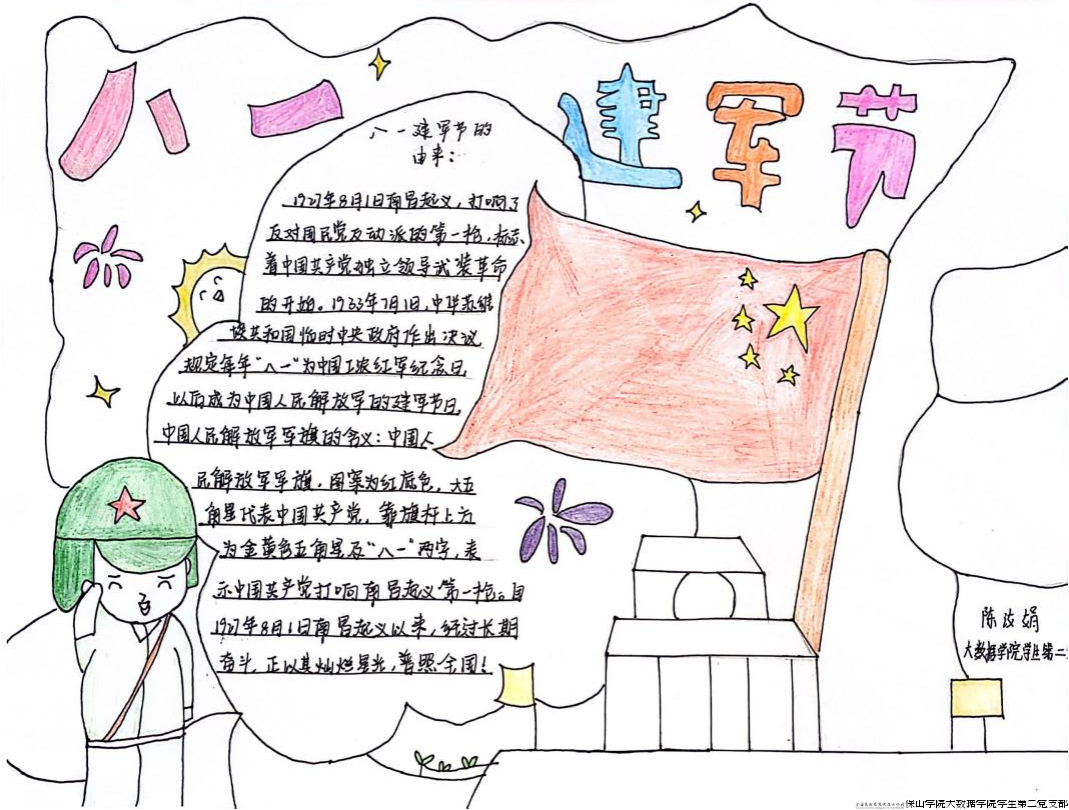 八一 建军节
八一建军节的
由来：
1927年8月1日南昌起义，打响了
反对国民党反动派的第一枪，标志
着中国共产党独立领导武装革命
的开始。1933年7月1日，中华苏维
埃共和国临时中央政府作出决议
规定每年“八一”为中国工农红军纪念日
以后成为中国人民解放军的建军节日
中国人民解放军军旗的含义：中国人
民解放军军旗，图案为红底色，大五
角星代表中国共产党，靠旗杆上方
为金黄色五角星及“八一”两字，表
示中国共产党打响南昌起义第一枪。自
1927年8月1日南昌起义以来，经过长期
奋斗，正以其灿烂星光，普照全国！
陈 娟
大数据学院学生第二
保山学院大数据学院学生第二党支部